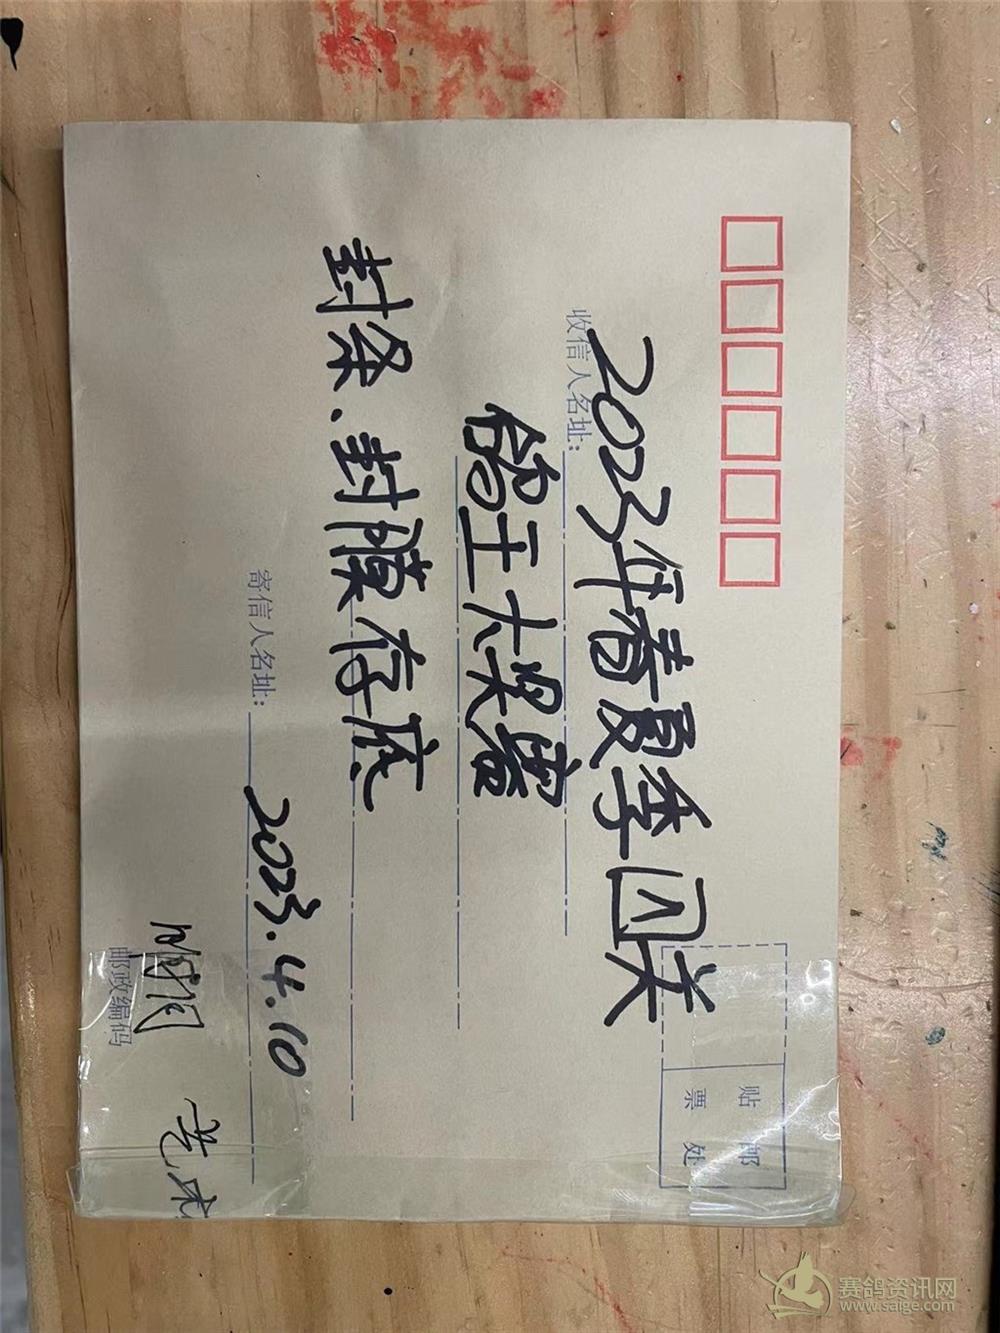 收信人名址：
2023年春夏季四关
鸽王大奖赛
封条、封膜存底
寄信人名址：
2023.4.10
邮政编码
贴邮
票处
赛鸽资讯网
www.saige.com